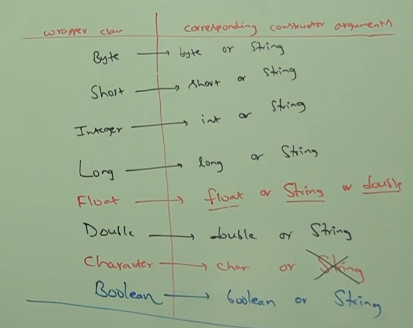 wrapper class corresponding constructor arguments
Byte → byte or String
Short → short or String
Integer → int or String
Long → long or String
Float → float or String or double
Double → double or String
Character → char or String
Boolean → boolean or String